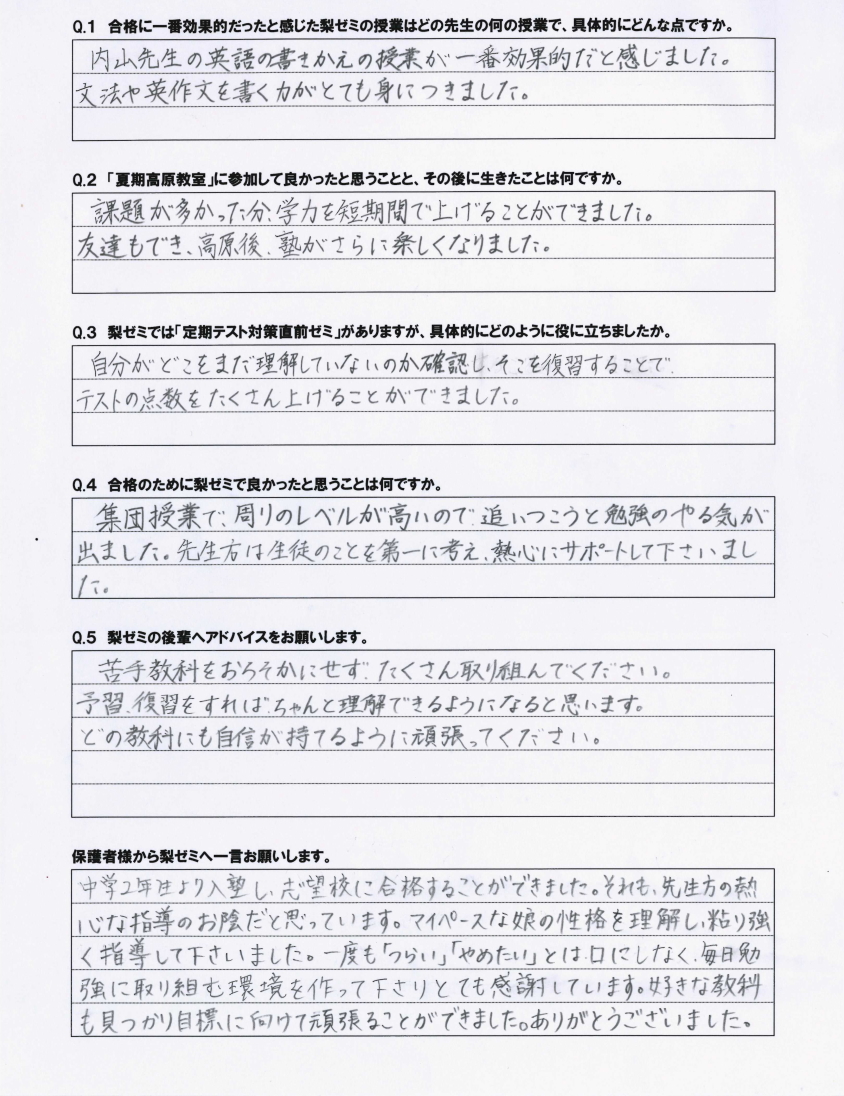 Q.1 合格に一番効果的だったと感じた梨ゼミの授業はどの先生の何の授業で、具体的にどんな点ですか。
内山先生の英語の書きかえの授業が一番効果的だと感じました。
文法や英作文を書く力がとても身につきました。
Q.2 「夏期高原教室」に参加して良かったと思うことと、その後に生きたことは何ですか。
課題が多かった分、学力を短期間で上げることができました。
友達もでき、高原後、塾がさらに楽しくなりました。
Q.3 梨ゼミでは「定期テスト対策直前ゼミ」がありますが、具体的にどのように役に立ちましたか。
自分がどこをまだ理解していないのか確認し、そこを復習することで、
テストの点数をたくさん上げることができました。
Q.4 合格のために梨ゼミで良かったと思うことは何ですか。
集団授業で、周りのレベルが高いので、追いつこうと勉強のやる気が
出ました。先生方は生徒のことを第一に考え、熱心にサポートして下さいまし
た。
Q.5 梨ゼミの後輩へアドバイスをお願いします。
苦手教科をおろそかにせず、たくさん取り組んでください。
予習、復習をすれば、ちゃんと理解できるようになると思います。
どの教科にも自信が持てるように頑張ってください。
保護者様から梨ゼミへ一言お願いします。
中学2年生より入塾し、志望校に合格することができました。それも、先生方の熱
心な指導のお陰だと思っています。マイペースな娘の性格を理解し、粘り強
く指導して下さいました。一度も「つらい」「やめたい」とは口にしなく、毎日勉
強に取り組む環境を作って下さりとても感謝しています。好きな教科
も見つかり目標に向けて頑張ることができました。ありがとうございました。